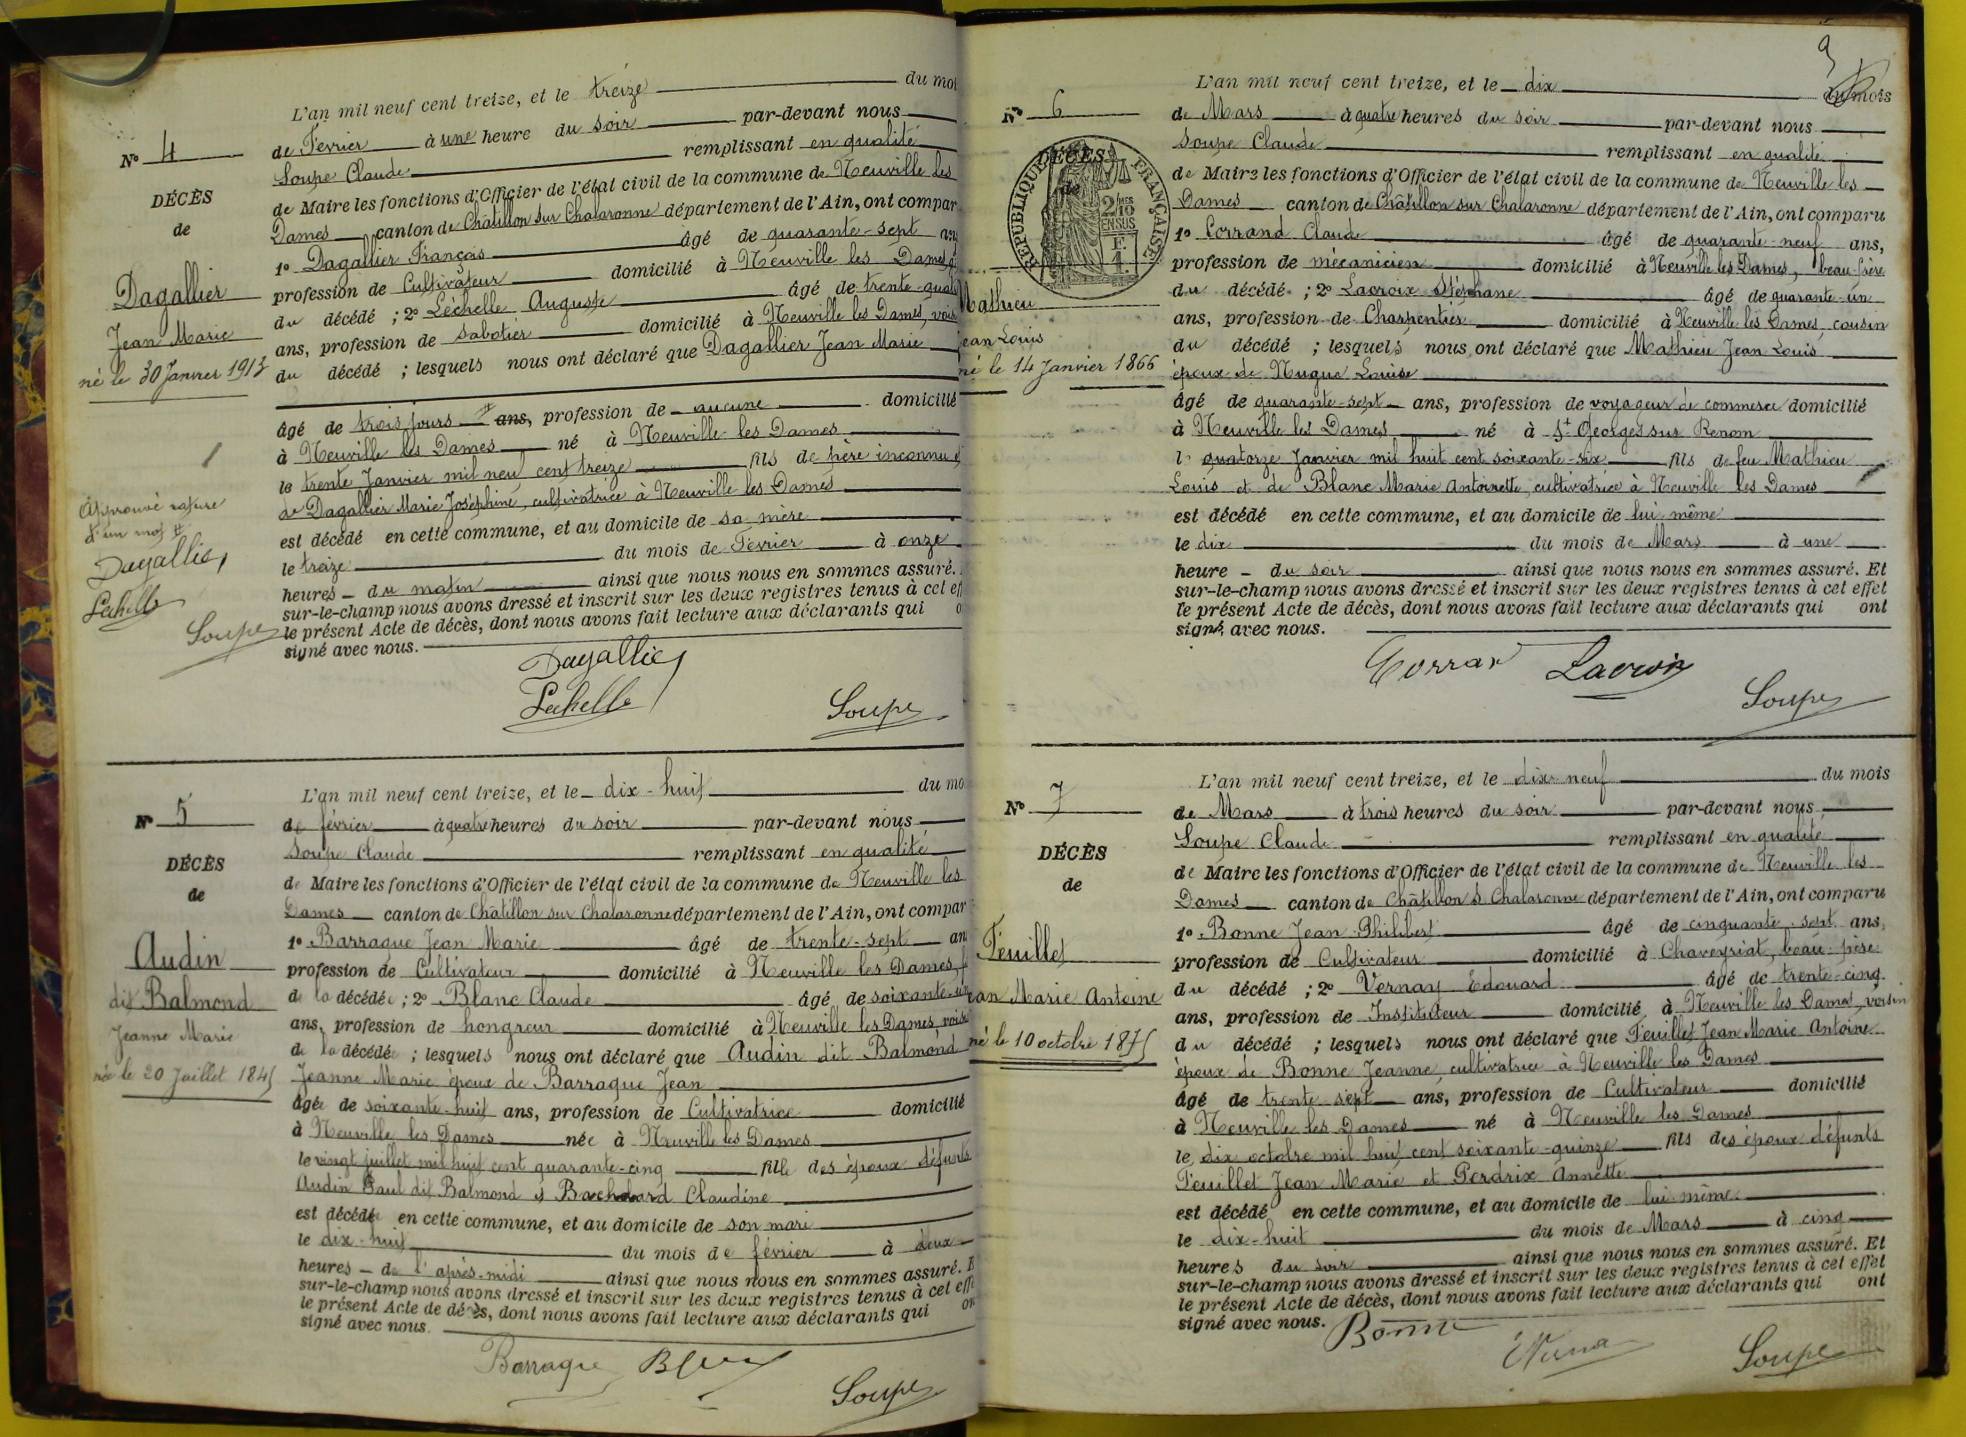 L'an mil neuf cent treize, et le treize du moi
N° 4
de Février à une heure du soir par-devant nous
Soupe Claude remplissant en qualité
DÉCÈS
de Maire les fonctions d'Officier de l'état civil de la commune de Neuville les
de
Dames canton de Châtillon sur Chalaronne département de l'Ain, ont compar
1° Dagallier François âgé de quarante-sept ans
Dagallier
profession de Cultivateur domicilié à Neuville les Dames
du décédé ; 2° Léchelle Auguste âgé de trente-quat
Jean Marie
ans, profession de Sabotier domicilié à Neuville les Dames, voisi
né le 30 Janvier 1913
du décédé ; lesquels nous ont déclaré que Dagallier Jean Marie
âgé de trois jours ans, profession de aucune domicilié
à Neuville les Dames né à Neuville les Dames
le trente Janvier mil neuf cent treize fils de père inconnu et
de Dagallier Marie Joséphine, cultivatrice à Neuville les Dames
Approuvé rature
d'un mot
est décédé en cette commune, et au domicile de sa mère
Dagallier
le treize du mois de Février à onze
Lechelle
heures du matin ainsi que nous nous en sommes assuré.
Soupe
sur-le-champ nous avons dressé et inscrit sur les deux registres tenus à cet eff
le présent Acte de décès, dont nous avons fait lecture aux déclarants qui o
signé avec nous.
Dagallier
Lechelle
Soupe
L'an mil neuf cent treize, et le dix-huit du mo
N° 5
de février à quatre heures du soir par-devant nous
Soupe Claude remplissant en qualité
DÉCÈS
de Maire les fonctions d'Officier de l'état civil de la commune de Neuville les
de
Dames canton de Châtillon sur Chalaronne département de l'Ain, ont compar
1° Barraque Jean Marie âgé de trente-sept an
Audin
profession de Cultivateur domicilié à Neuville les Dames, f
dit Balmond
de la décédée ; 2° Blanc Claude âgé de soixante-un
ans, profession de hongreur domicilié à Neuville les Dames, voisi
Jeanne Marie
de la décédée ; lesquels nous ont déclaré que Audin dit Balmond
née le 20 Juillet 1845
Jeanne Marie époux de Barraque Jean
âgée de soixante-huit ans, profession de Cultivatrice domicilié
à Neuville les Dames née à Neuville les Dames
le vingt juillet mil huit cent quarante-cinq fille des époux défunts
Audin Paul dit Balmond et Bachelard Claudine
est décédée en cette commune, et au domicile de son mari
le dix-huit du mois de février à deux
heures de l'après-midi ainsi que nous nous en sommes assuré. E
sur-le-champ nous avons dressé et inscrit sur les deux registres tenus à cet effe
le présent Acte de décès, dont nous avons fait lecture aux déclarants qui on
signé avec nous.
Barraque Blanc
Soupe
9
L'an mil neuf cent treize, et le dix du mois
N° 6
de Mars à quatre heures du soir par-devant nous
Soupe Claude remplissant en qualité
DÉCÈS
de
RÉPUBLIQUE FRANÇAISE
2/10 EN SUS
F. 1.
de Maire les fonctions d'Officier de l'état civil de la commune de Neuville les
Dames canton de Châtillon sur Chalaronne département de l'Ain, ont comparu
1° Corrand Claude âgé de quarante-neuf ans,
profession de mécanicien domicilié à Neuville les Dames, beau-frère
du décédé ; 2° Lacroix Stéphane âgé de quarante-un
Mathieu
ans, profession de Charpentier domicilié à Neuville les Dames, cousin
Jean Louis
du décédé ; lesquels nous ont déclaré que Mathieu Jean Louis
né le 14 Janvier 1866
époux de Nugue Louise
âgé de quarante-sept ans, profession de voyageur de commerce domicilié
à Neuville les Dames né à St Georges sur Renom
le quatorze Janvier mil huit cent soixante-six fils de feu Mathieu
Louis et de Blanc Marie Antoinette cultivatrice à Neuville les Dames
est décédé en cette commune, et au domicile de lui même
le dix du mois de Mars à une
heure du soir ainsi que nous nous en sommes assuré. Et
sur-le-champ nous avons dressé et inscrit sur les deux registres tenus à cet effet
le présent Acte de décès, dont nous avons fait lecture aux déclarants qui ont
signé avec nous.
Corran Lacroix
Soupe
L'an mil neuf cent treize, et le dix-neuf du mois
N° 7
de Mars à trois heures du soir par-devant nous
Soupe Claude remplissant en qualité
DÉCÈS
de Maire les fonctions d'Officier de l'état civil de la commune de Neuville les
de
Dames canton de Châtillon s Chalaronne département de l'Ain, ont comparu
1° Bonne Jean Philibert âgé de cinquante-sept ans,
Feuillet
profession de Cultivateur domicilié à Chaveyriat, beau-père
du décédé ; 2° Vernay Edouard âgé de trente-cinq
ean Marie Antoine
ans, profession de Instituteur domicilié à Neuville les Dames, voisin
né le 10 octobre 1875
du décédé ; lesquels nous ont déclaré que Feuillet Jean Marie Antoine
époux de Bonne Jeanne, cultivatrice à Neuville les Dames
âgé de trente-sept ans, profession de Cultivateur domicilié
à Neuville les Dames né à Neuville les Dames
le dix octobre mil huit cent soixante-quinze fils des époux défunts
Feuillet Jean Marie et Perdrix Annette
est décédé en cette commune, et au domicile de lui même
le dix-huit du mois de Mars à cinq
heures du soir ainsi que nous nous en sommes assuré. Et
sur-le-champ nous avons dressé et inscrit sur les deux registres tenus à cet effet
le présent Acte de décès, dont nous avons fait lecture aux déclarants qui ont
signé avec nous.
Bonne
EVerna
Soupe